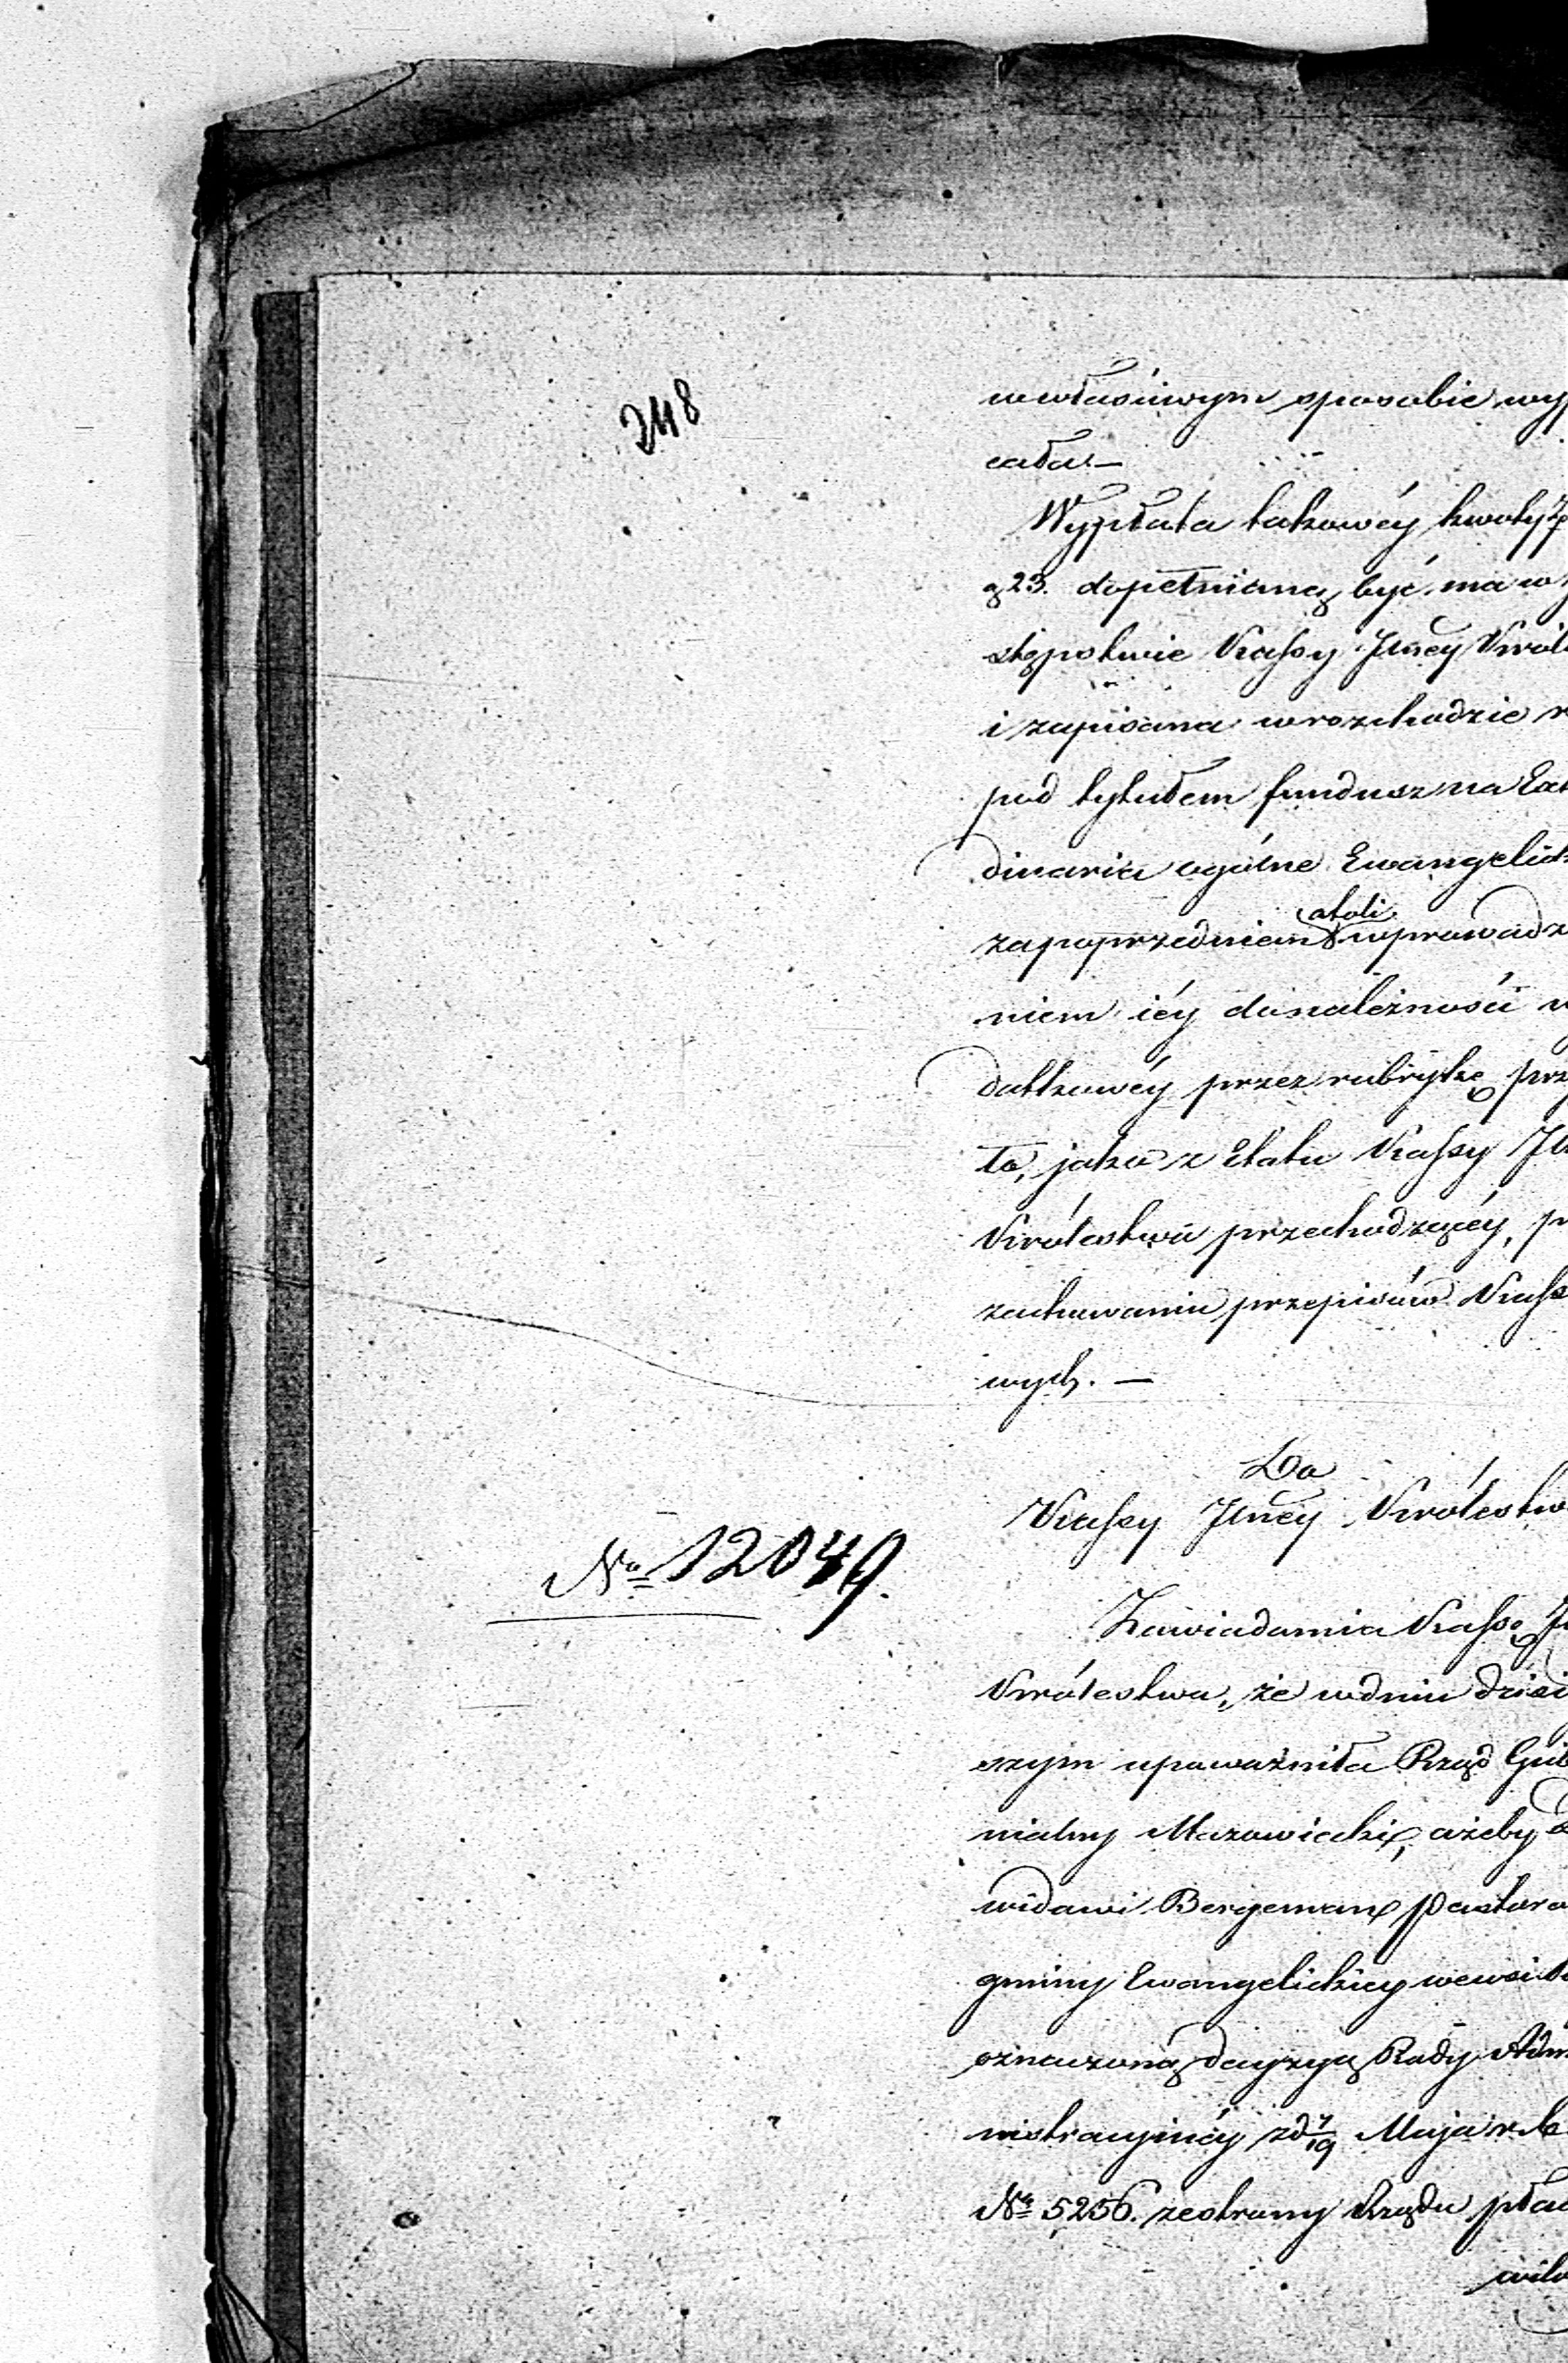 248
w właściwym sposobie wyp
cała. —
Wypłata takowéy kwoty
g 23. dopełnianą być ma w
stępstwie Kassy Jlnéy Król
i zapisana w rozchodzie
pod tytułem fundusz na Ext
dinaria ogólne Ewangelick
atoli
za poprzedniem wprowadze
niem iéy do należności
datkowéy przez rubrykę prz
to, jako z Etatu Kassy Jl
Królestwa przechodzącéy, p
zachowaniu przepisów Kass
wych. —
Do
Kassy Jlnéy Królestw
No 12049.
Zawiadamia Kassę J
Królestwa, że w dniu dzisi
szym upoważniła Rząd Gub
nialny Mazowiecki, ażeby D
widowi Bergeman Pastoro
gminy Ewangelickiey we wsi
oznaczoną decyzyą Rady Adm
nistracyinéy z d 7/19 Maja r. b.
No 5256. ze strony Rządu płac